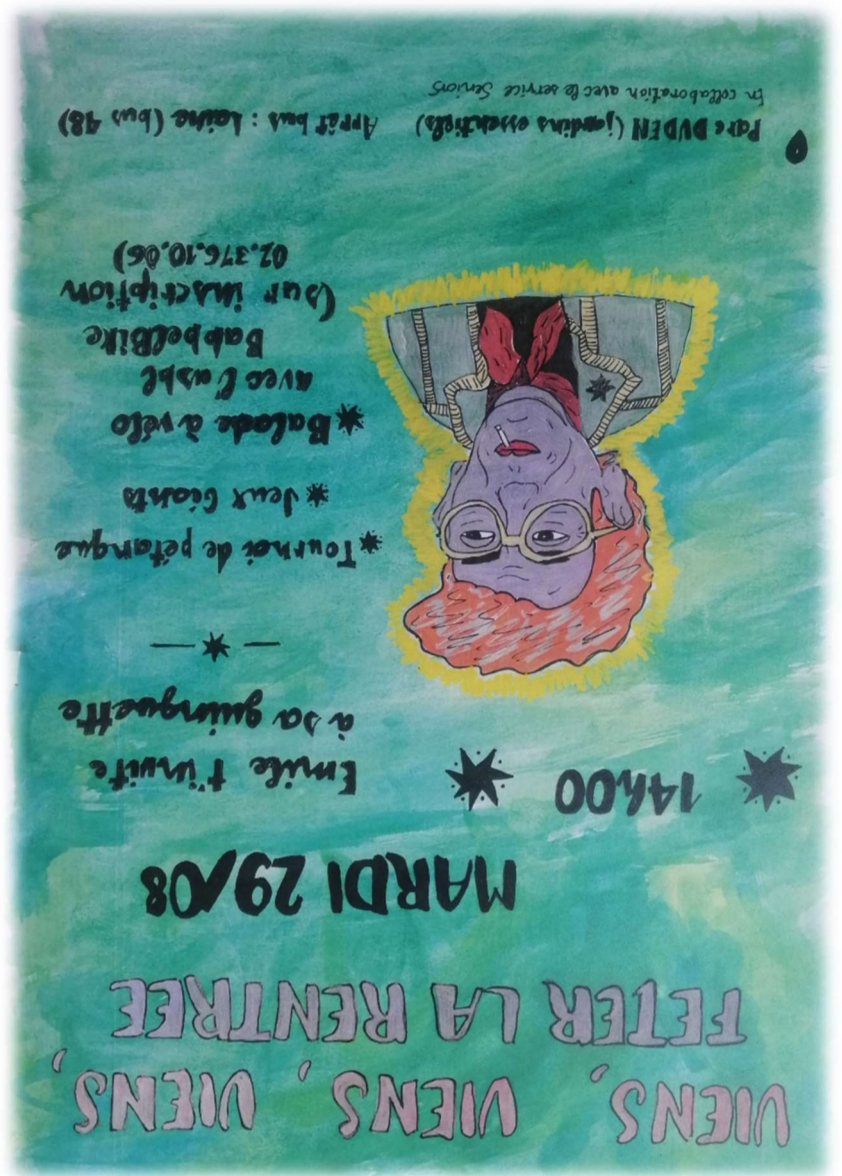 VIENS, VIENS, VIENS,
FETER LA RENTREE
MARDI 29/08
14h00
Emile t'invite
à sa guinguette
Tournoi de pétanque
Jeux Géants
Balade à vélo
avec l'asbl
BabbelBike
(sur inscription
02.376.10.06)
Parc DUDEN (jardins essentiels)
Arrêt bus : Laine (bus 48)
En collaboration avec le service Seniors